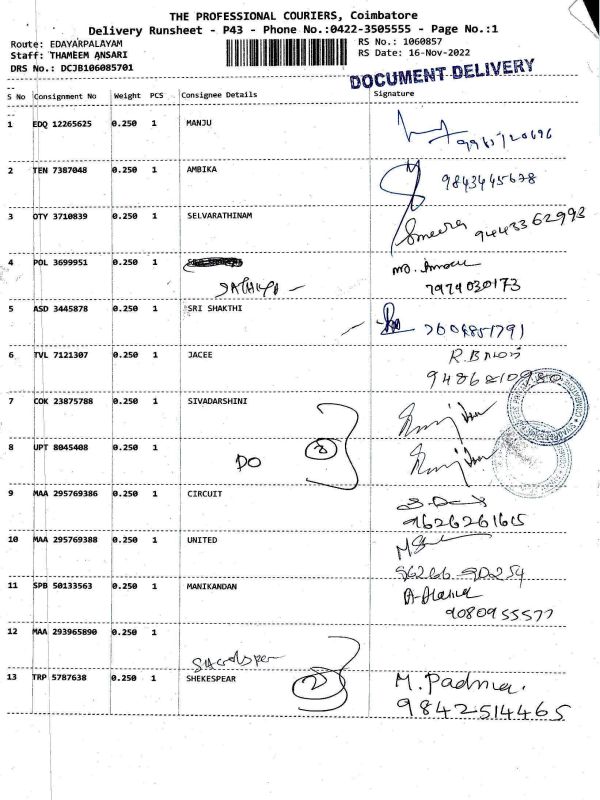 THE PROFESSIONAL COURIERS, Coimbatore
Delivery Runsheet - P43 - Phone No.:0422-3505555 - Page No.:1
Route: EDAYARPALAYAM RS No.: 1060857
Staff: THAMEEM ANSARI RS Date: 16-Nov-2022
DRS No.: DCJB106085701
DOCUMENT DELIVERY
S No Consignment No Weight PCS Consignee Details Signature
1 EDQ 12265625 0.250 1 MANJU
2 TEN 7387048 0.250 1 AMBIKA
9843445678
3 OTY 3710839 0.250 1 SELVARATHINAM
Smeera 9443362993
4 POL 3699951 0.250 1
7979030173
5 ASD 3445878 0.250 1 SRI SHAKTHI
6 TVL 7121307 0.250 1 JACEE
9486210980
7 COK 23875788 0.250 1 SIVADARSHINI
8 UPT 8045408 0.250 1
DO
9 MAA 295769386 0.250 1 CIRCUIT
9626261615
10 MAA 295769388 0.250 1 UNITED
56266 90254
11 SPB 50133563 0.250 1 MANIKANDAN
9080955577
12 MAA 293965890 0.250 1
13 TRP 5787638 0.250 1 SHEKESPEAR 2
M. Padma.
9842514465